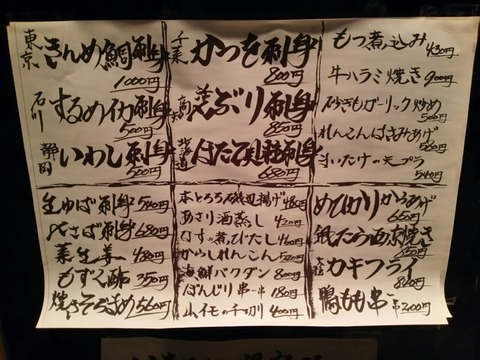 東京 きんめ鯛刺身 1000円
石川 するめイカ刺身 500円
静岡 いわし刺身 500円
千葉 かつを刺身 800円
高知 ぶり刺身 800円
北海道 ほたて貝柱刺身 680円
もつ煮込み 430円
牛ハラミ焼き 900円
砂ぎもガーリック炒め 500円
れんこんはさみあげ
まいたけの天プラ 540円
生ゆば刺身 540円
〆さば刺身 680円
葉生姜 480円
もずく酢 350円
焼きそらまめ 560円
本とろろ磯辺揚げ 480円
あさり酒蒸し 420円
なす煮びたし 460円
からしれんこん 520円
海鮮バクダン 800円
ぼんじり串 一串 180円
山イモの千切り 400円
めひかりからあげ 650円
焼き
カキフライ
鴨もも串 一串 200円